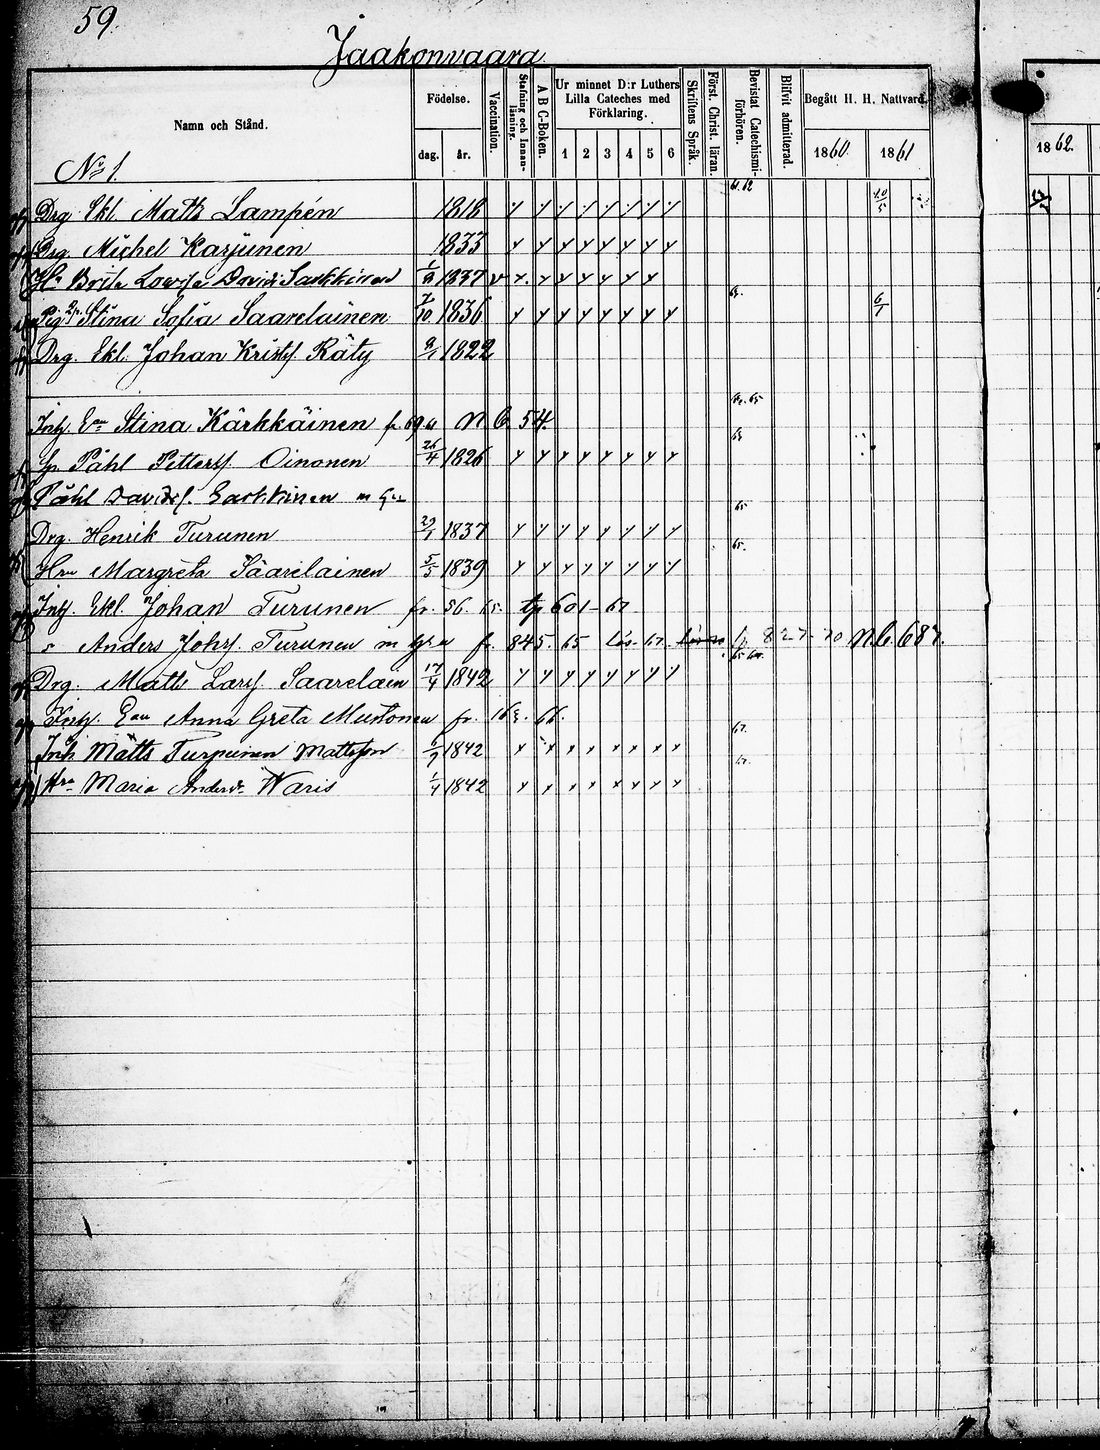 59.
Jaakonvaara
Namn och Stånd.
Födelse.
dag. år.
Vaccination.
Stafning och Innanläsning.
A B C-Boken.
Ur minnet D:r Luthers Lilla Cateches med Förklaring.
1 2 3 4 5 6
Skriftens Språk.
Först. Christ. läran.
Bevistat Catechismiförhören.
Blifvit admitterad.
Begått H. H. Nattvard.
1860 1861 1862.
No 1.
Drg Skl. Matts Lampén 1818
Drg. Michel Karjunen 1833
Hu Brita Lovisa Davidr Sarkkinen 1837 v
Pig Stina Sofia Saarelainen 7/10 1836 6/1
Drg. Skl. Johan Kristf. Räty 1822
Inh. Ean Stina Kärkkäinen fr. 69 N. b. 54.
Påhl Petters. Oinonen 26/4 1826
Påhl Davids. Sarkkinen m
Drg. Henrik Turunen 1837
Hru Margreta Saarelainen 5/5 1839
Inh. Skl. Johan Turunen fr. 56. 65. tp 601-67
s Anders Johs. Turunen m fr. 845. 65 827-70 N.b. 687.
Drg. Matts Lars. Saarelain 17/4 1842
Inh. Ean Anna Greta Mustonen fr. 66.
Inh Matts Turpeinen Mattsson 1842
Hru Maria Andersdr Waris 1/4 1842